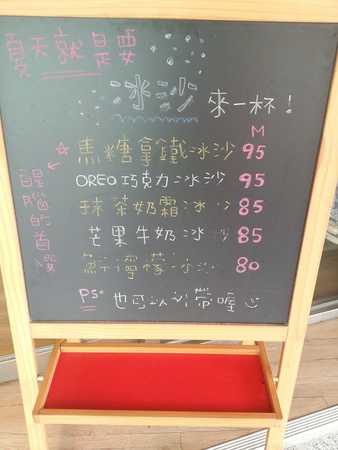 夏天就是要
冰沙 來一杯！
M
焦糖拿鐵冰沙 95
OREO巧克力冰沙 95
抹茶奶霜冰沙 85
芒果牛奶冰沙 85
檸檬冰沙 80
醒腦的首選
PS. 也可以外帶喔